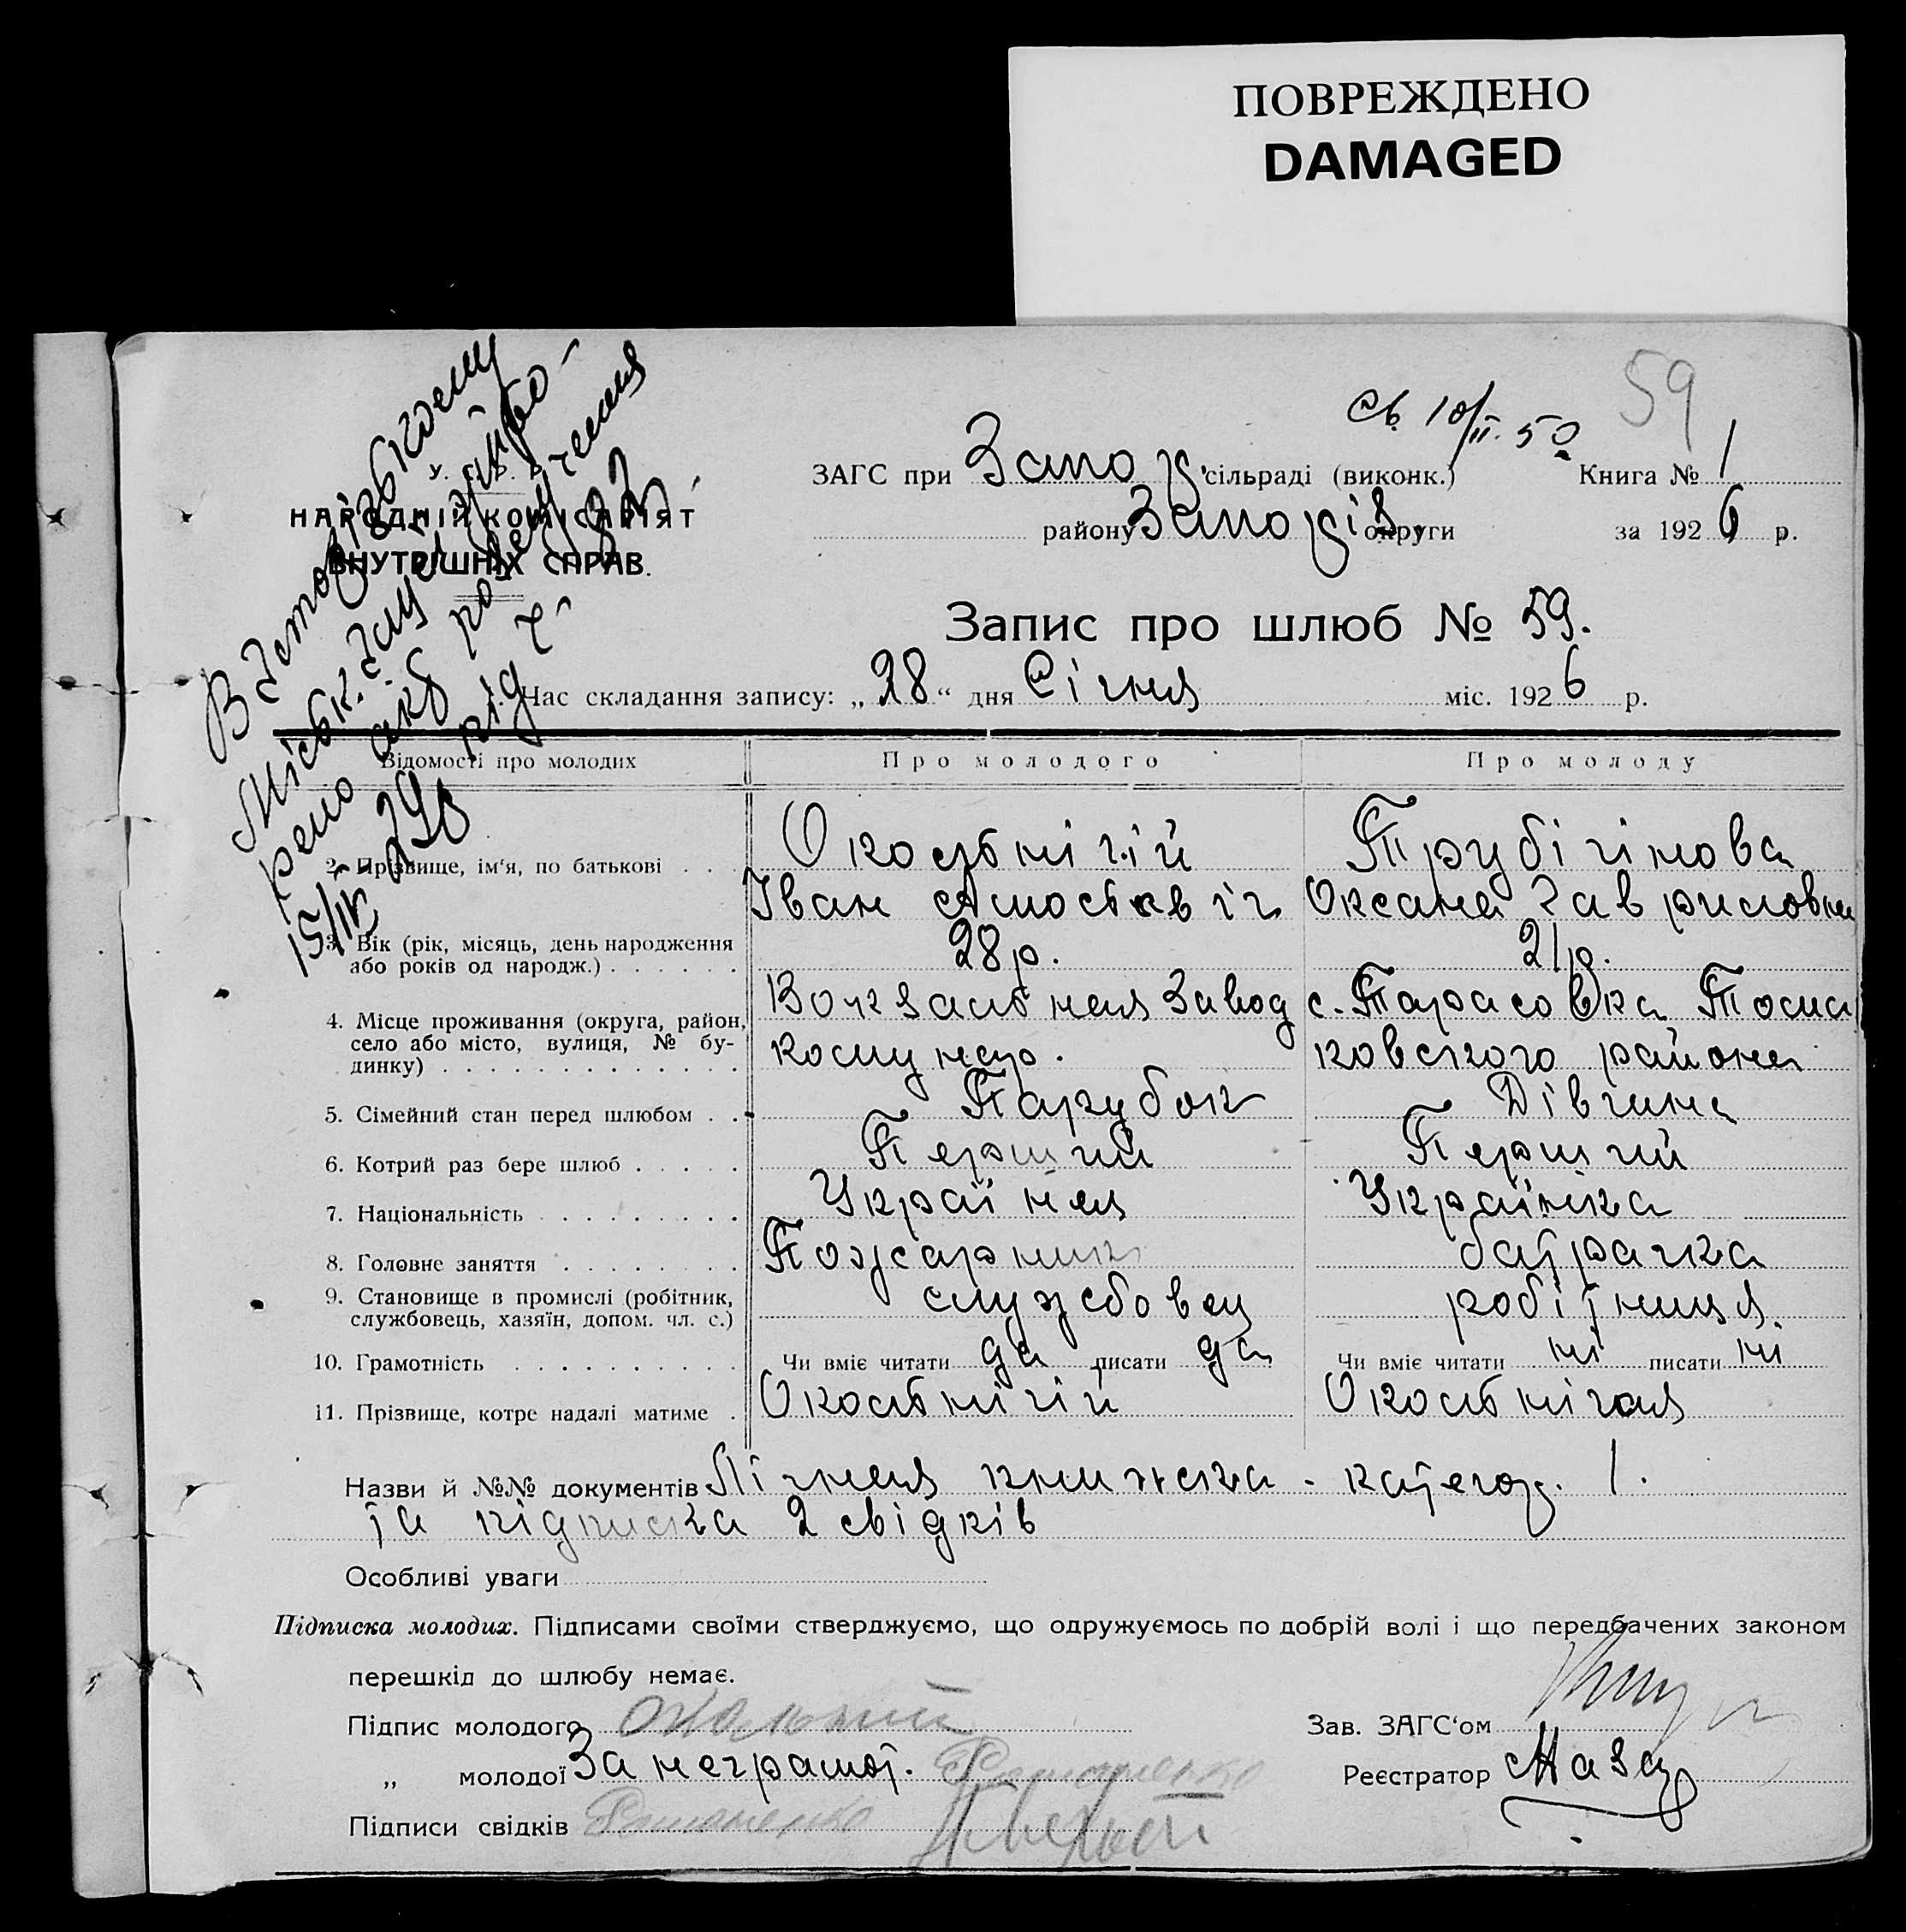 ПОВРЕЖДЕНО
DAMAGED
59
Св. 10/II. 50
У. С. Р. Р.
НАРОДНІЙ КОМІСАРІЯТ
ВНУТРІШНІХ СПРАВ.
ЗАГС при Запор. сільраді (виконк.) Книга № 1
району Запоріз. округи за 1926 р.
Запис про шлюб № 59.
Час складання запису: „28“ дня Січня міс. 1926 р.
В Запорізькому
Міськ. загсі
акт
15/IV
Відомості про молодих Про молодого Про молоду
2. Прізвище, ім‘я, по батькові . . .
Окольнічій
Іван
Трубічінова
Оксана Гавриловна
3. Вік (рік, місяць, день народження
або років од народж.) . . . . . .
28 р. 21 р.
4. Місце проживання (округа, район,
село або місто, вулиця, № бу-
динку) . . . . . . . . . . . . .
Вокзальная Завод
Комунар.
с. Тарасовка Тома
ковского района
5. Сімейний стан перед шлюбом . . Парубок Дівчина
6. Котрий раз бере шлюб . . . . . Перший Перший
7. Національність . . . . . . . . . Українец Українка
8. Головне заняття . . . . . . . . Пожарник батрачка
9. Становище в промислі (робітник,
службовець, хазяїн, допом. чл. с.)
службовец робітниця.
10. Грамотність . . . . . . . . . . Чи вміє читати да писати да Чи вміє читати ні писати ні
11. Прізвище, котре надалі матиме . Окольнічій Окольнічая
Назви й №№ документів Лічная книжка - категор. 1.
та підписка 2 свідків
Особливі уваги
Підписка молодих. Підписами своїми стверджуємо, що одружуємось по добрій волі і що передбачених законом
перешкід до шлюбу немає.
Підпис молодого Зав. ЗАГС‘ом
„ молодої За неграмот. Романенко Реєстратор
Підписи свідків Романенко